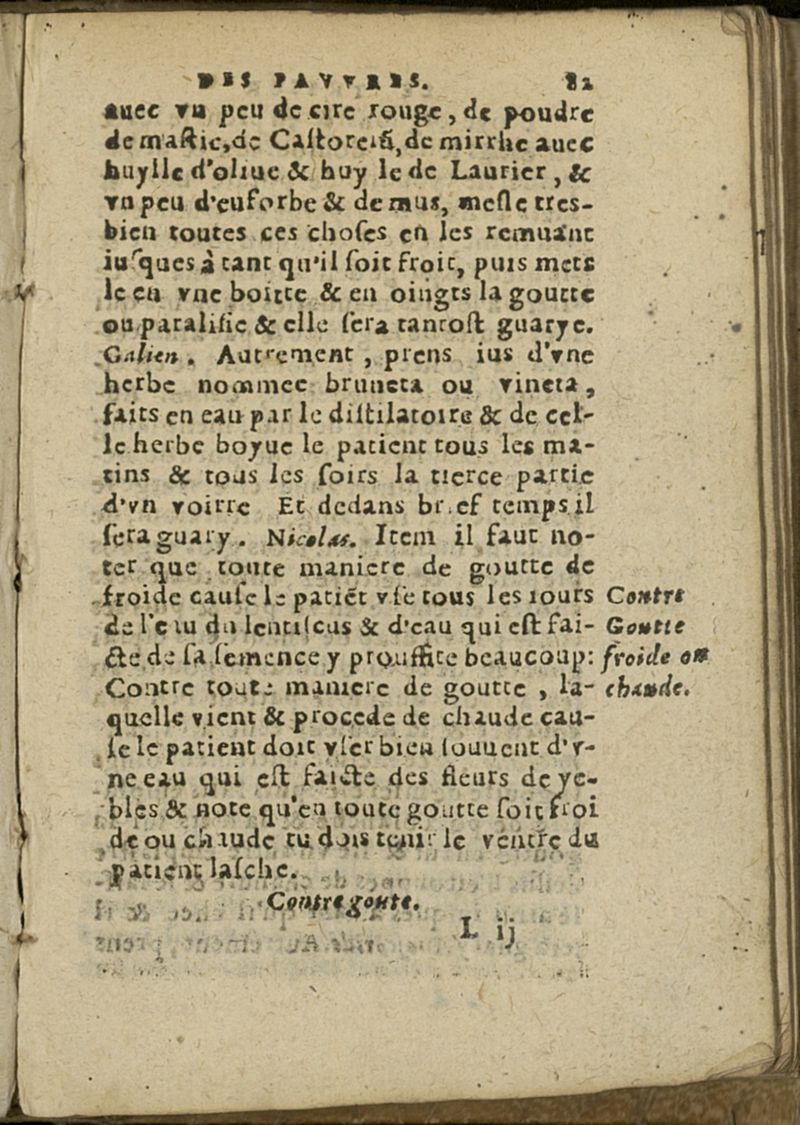 DES PAVVRES. 82
auec vn peu de cire rouge, de poudre
de mastic, de Castoreũ, de mirrhe auec
huylle d'oliue & huy le de Laurier, &
vn peu d'euforbe & de mus, mesle tres-
bien toutes ces choses en les remuant
iusques à tant qu'il soit froit, puis mets
le en vne boitte & en oingts la goutte
ou paralisie & elle sera tantost guarye.
Galien. Autrement, prens ius d'vne
herbe nommee bruneta ou vineta,
faits en eau par le distilatoire & de cel-
le herbe boyue le patient tous les ma-
tins & tous les soirs la tierce partie
d'vn voirre Et dedans brief temps il
sera guary. Nicolas. Item il faut no-
ter que toute maniere de goutte de
froide cause le patiēt vse tous les iours
de l'eau du lentiscus & d'eau qui est fai-
cte de sa semence y prouffite beaucoup:
Contre
Goutte
froide ou
chaude.
Contre toute maniere de goutte, la-
quelle vient & procede de chaude cau-
se le patient doit vser bien souuent d'v-
ne eau qui est faicte des fleurs de ye-
bles & note qu'en toute goutte soit froi
de ou chaude tu dois tenir le ventre du
patient lasche.
Contre goute.
L ij